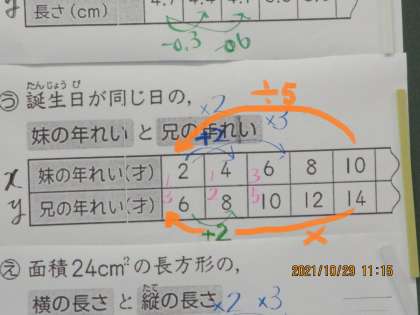 y 長さ(cm) 4.7
-0.3 -0.6
う 誕生日が同じ日の, ×2 ÷5
たんじょうび
妹の年れい と 兄の年れい ×3
+2
x 妹の年れい(才) 2 4 6 8 10
y 兄の年れい(才) 6 8 10 12 14
1 1 3
3 2 5
+2 ×
え 面積24cm²の長方形の,
たて
横の長さ と 縦の長さ ×2 ×3
2021/10/29 11:15